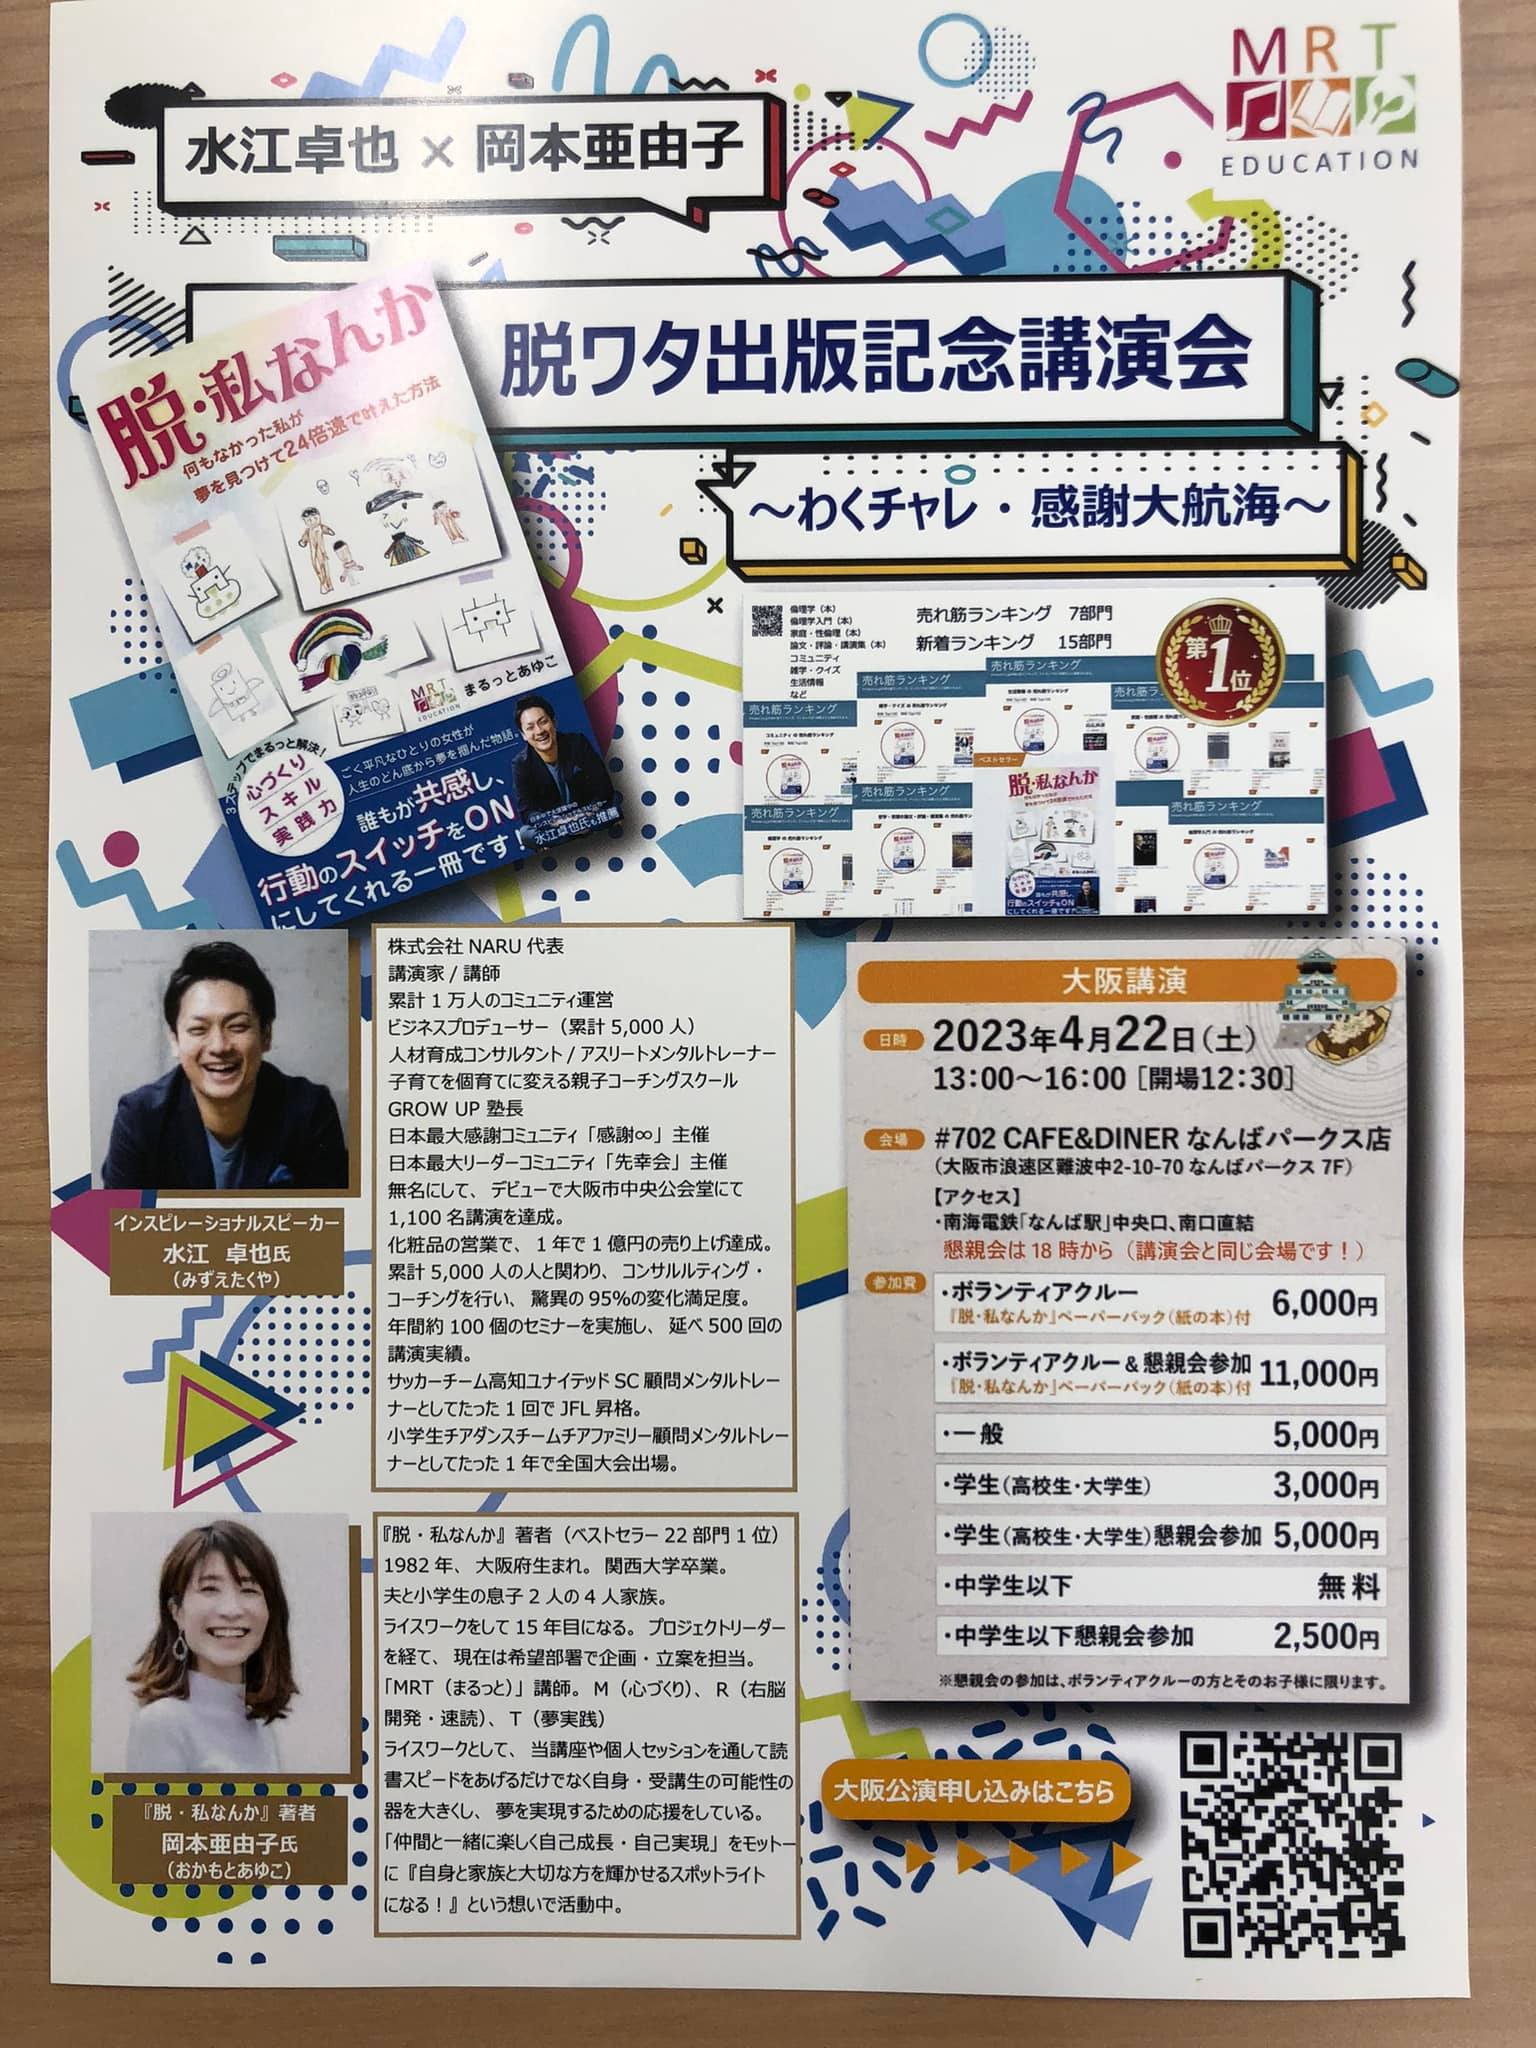 MRT
EDUCATION
水江卓也 × 岡本亜由子
脱ワタ出版記念講演会
～わくチャレ・感謝大航海～
脱・私なんか
何もなかった私が
夢を見つけて24倍速で叶えた方法
まるっとあゆこ
MRT
EDUCATION
3ステップでまるっと解決！
心づくり
スキル
実践力
ごく平凡なひとりの女性が
人生のどん底から夢を掴んだ物語。
誰もが共感し、
行動のスイッチをON
にしてくれる一冊です！
水江卓也氏も推薦
倫理学（本）
倫理学入門（本）
家庭・性倫理（本）
論文・評論・講演集（本）
コミュニティ
雑学・クイズ
生活情報
など
売れ筋ランキング 7部門
新着ランキング 15部門
第1位
売れ筋ランキング
売れ筋ランキング
売れ筋ランキング
売れ筋ランキング
売れ筋ランキング
売れ筋ランキング
売れ筋ランキング
ベストセラー
脱・私なんか
行動のスイッチをON
株式会社 NARU 代表
講演家 / 講師
累計 1 万人のコミュニティ運営
ビジネスプロデューサー（累計 5,000 人）
人材育成コンサルタント / アスリートメンタルトレーナー
子育てを個育てに変える親子コーチングスクール
GROW UP 塾長
日本最大感謝コミュニティ「感謝∞」主催
日本最大リーダーコミュニティ「先幸会」主催
無名にして、デビューで大阪市中央公会堂にて
1,100 名講演を達成。
化粧品の営業で、1 年で 1 億円の売り上げ達成。
累計 5,000 人の人と関わり、コンサルルティング・
コーチングを行い、驚異の 95％の変化満足度。
年間約 100 個のセミナーを実施し、延べ 500 回の
講演実績。
サッカーチーム高知ユナイテッド SC 顧問メンタルトレー
ナーとしてたった 1 回で JFL 昇格。
小学生チアダンスチームチアファミリー顧問メンタルトレー
ナーとしてたった 1 年で全国大会出場。
インスピレーショナルスピーカー
水江 卓也氏
（みずえたくや）
『脱・私なんか』著者（ベストセラー 22 部門 1 位）
1982 年、大阪府生まれ。関西大学卒業。
夫と小学生の息子 2 人の 4 人家族。
ライスワークをして 15 年目になる。プロジェクトリーダー
を経て、現在は希望部署で企画・立案を担当。
「MRT（まるっと）」講師。M（心づくり）、R（右脳
開発・速読）、T（夢実践）
ライスワークとして、当講座や個人セッションを通して読
書スピードをあげるだけでなく自身・受講生の可能性の
器を大きくし、夢を実現するための応援をしている。
「仲間と一緒に楽しく自己成長・自己実現」をモットー
に『自身と家族と大切な方を輝かせるスポットライト
になる！』という想いで活動中。
『脱・私なんか』著者
岡本亜由子氏
（おかもとあゆこ）
大阪講演
日時 2023年4月22日（土）
13:00～16:00［開場12:30］
会場 #702 CAFE&DINER なんばパークス店
（大阪市浪速区難波中2-10-70 なんばパークス 7F）
【アクセス】
・南海電鉄「なんば駅」中央口、南口直結
懇親会は 18 時から（講演会と同じ会場です！）
参加費
・ボランティアクルー 6,000円
『脱・私なんか』ペーパーバック（紙の本）付
・ボランティアクルー & 懇親会参加 11,000円
『脱・私なんか』ペーパーバック（紙の本）付
・一般 5,000円
・学生（高校生・大学生） 3,000円
・学生（高校生・大学生）懇親会参加 5,000円
・中学生以下 無料
・中学生以下懇親会参加 2,500円
※懇親会の参加は、ボランティアクルーの方とそのお子様に限ります。
大阪公演申し込みはこちら